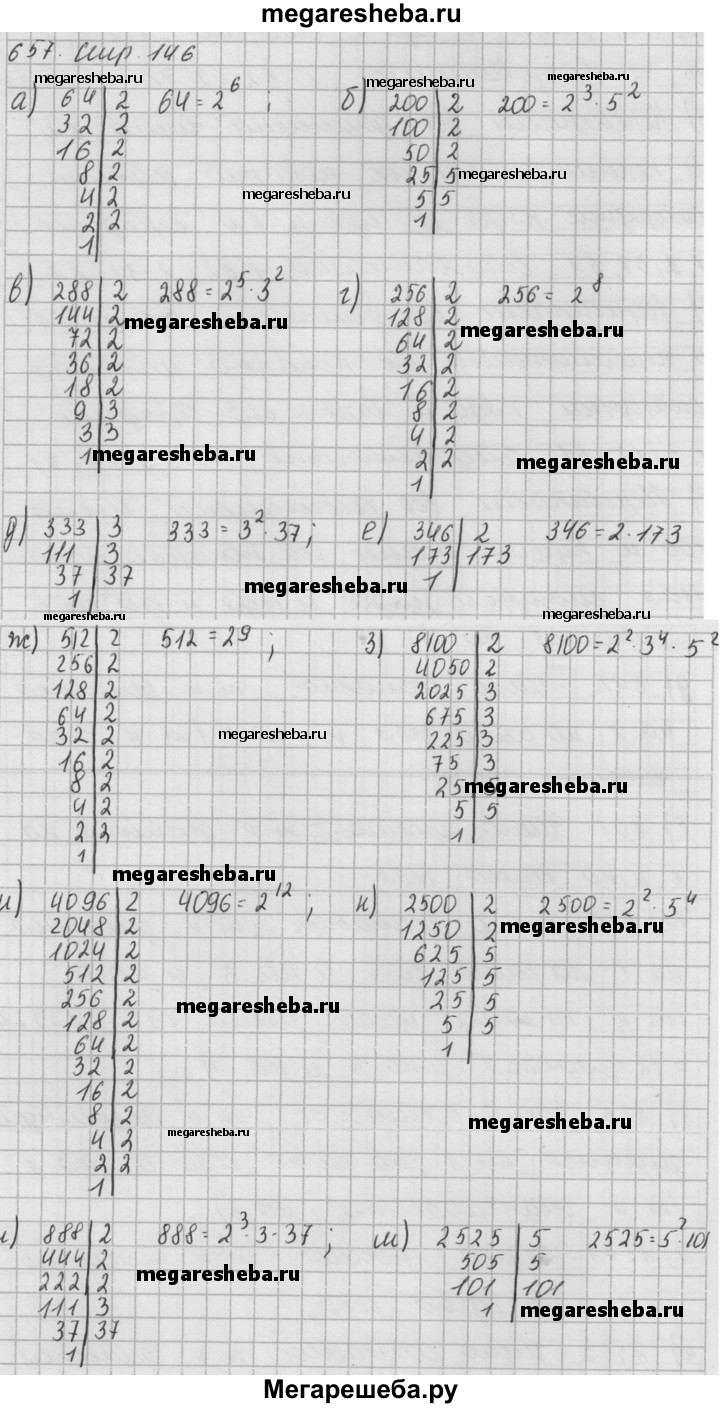 megaresheba.ru
657. стр. 146
megaresheba.ru megaresheba.ru megaresheba.ru
а) 64 | 2 64 = 2^6 ; б) 200 | 2 200 = 2^3 · 5^2
32 | 2 100 | 2
16 | 2 50 | 2
8 | 2 25 | 5 megaresheba.ru
4 | 2 megaresheba.ru 5 | 5
2 | 2 1 |
1 |
в) 288 | 2 288 = 2^5 · 3^2 г) 256 | 2 256 = 2^8
144 | 2 megaresheba.ru 128 | 2 megaresheba.ru
72 | 2 64 | 2
36 | 2 32 | 2
18 | 2 16 | 2
9 | 3 8 | 2
3 | 3 4 | 2
1 | megaresheba.ru 2 | 2 megaresheba.ru
1 |
д) 333 | 3 333 = 3^2 · 37 ; е) 346 | 2 346 = 2 · 173
111 | 3 173 | 173
37 | 37 megaresheba.ru 1 |
1 |
megaresheba.ru megaresheba.ru
ж) 512 | 2 512 = 29 ; з) 8100 | 2 8100 = 2^2 · 3^4 · 5^2
256 | 2 4050 | 2
128 | 2 2025 | 3
64 | 2 675 | 3
32 | 2 megaresheba.ru 225 | 3
16 | 2 75 | 3
8 | 2 25 | 5 megaresheba.ru
4 | 2 5 | 5
2 | 2 1 |
1 |
megaresheba.ru
и) 4096 | 2 4096 = 2^12 ; к) 2500 | 2 2500 = 2^2 · 5^4
2048 | 2 1250 | 2 megaresheba.ru
1024 | 2 625 | 5
512 | 2 125 | 5
256 | 2 megaresheba.ru 25 | 5
128 | 2 5 | 5
64 | 2 1 |
32 | 2
16 | 2
8 | 2 megaresheba.ru
4 | 2 megaresheba.ru
2 | 2
1 |
л) 888 | 2 888 = 2^3 · 3 · 37 ; м) 2525 | 5 2525 = 5^2 · 101
444 | 2 505 | 5
222 | 2 megaresheba.ru 101 | 101
111 | 3 1 | megaresheba.ru
37 | 37
1 |
Мегарешеба.ру